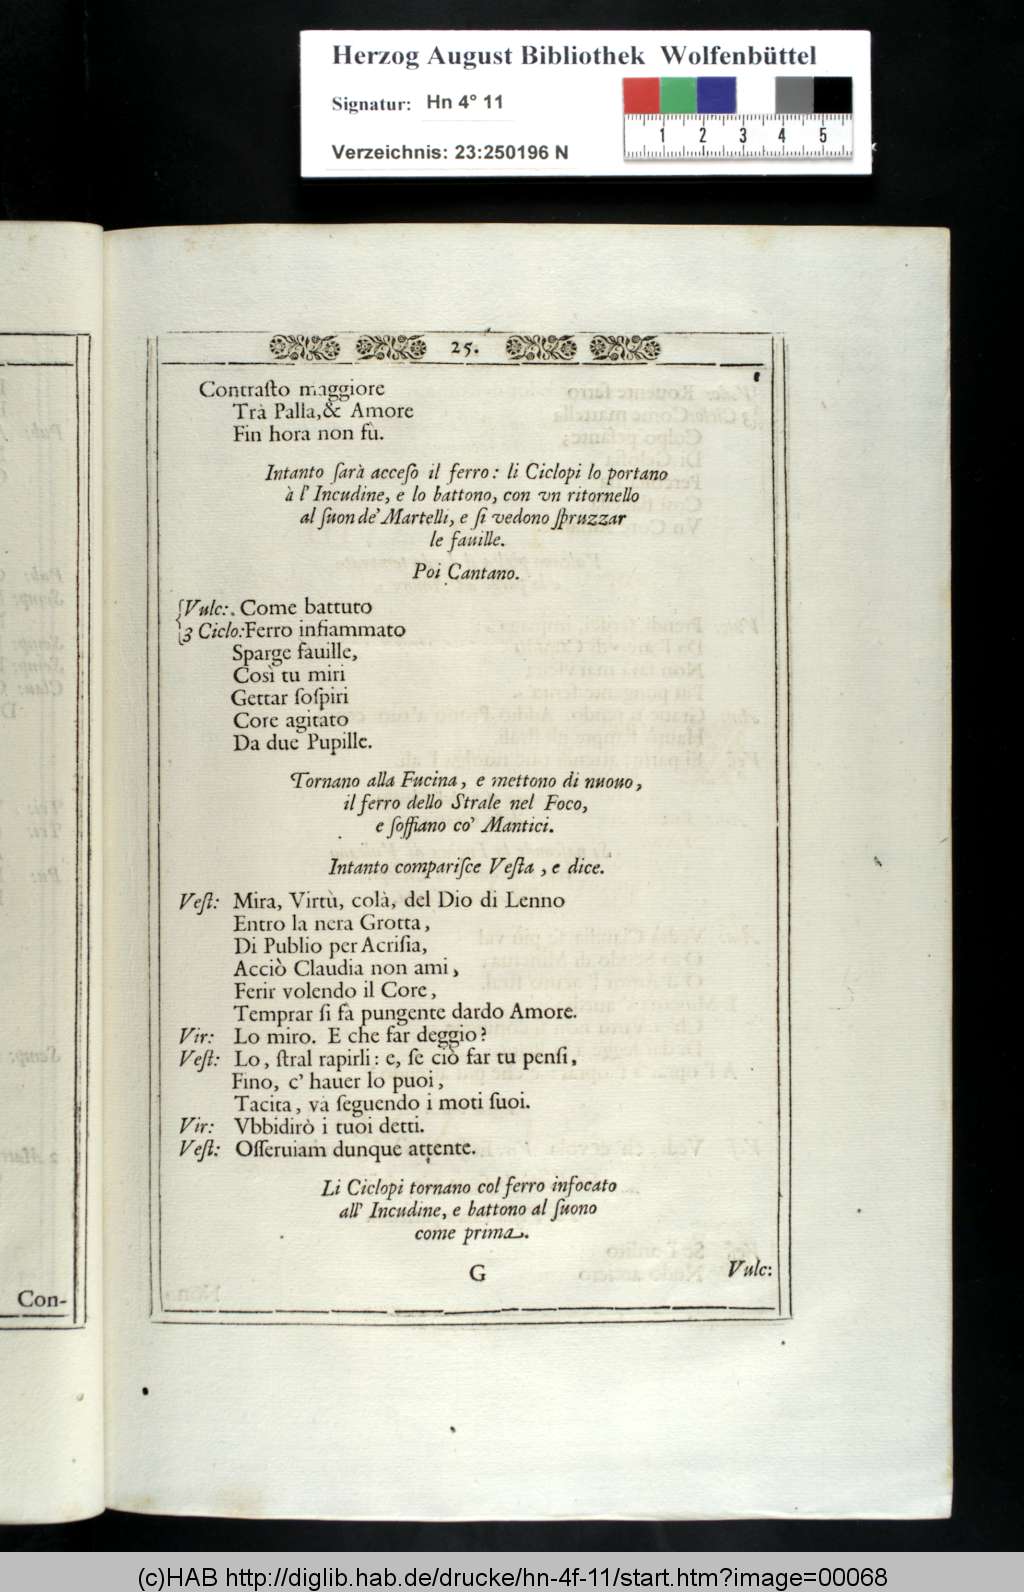 Herzog August Bibliothek Wolfenbüttel
Signatur: Hn 4° 11
Verzeichnis: 23:250196 N
1 2 3 4 5
25.
Contraſto maggiore
Trà Palla, & Amore
Fin hora non fù.
Intanto ſarà acceſo il ferro: li Ciclopi lo portano
à l'Incudine, e lo battono, con vn ritornello
al ſuon de' Martelli, e ſi vedono ſpruzzar
le fauille.
Poi Cantano.
Vulc: Come battuto
3 Ciclo: Ferro infiammato
Sparge fauille,
Così tu miri
Gettar ſoſpiri
Core agitato
Da due Pupille.
Tornano alla Fucina, e mettono di nuouo,
il ferro dello Strale nel Foco,
e ſoffiano co' Mantici.
Intanto compariſce Veſta, e dice.
Veſt: Mira, Virtù, colà, del Dio di Lenno
Entro la nera Grotta,
Di Publio per Acriſia,
Acciò Claudia non ami,
Ferir volendo il Core,
Temprar ſi fà pungente dardo Amore.
Vir: Lo miro. E che far deggio?
Veſt: Lo, ſtral rapirli: e, ſe ciò far tu penſi,
Fino, c' hauer lo puoi,
Tacita, và ſeguendo i moti ſuoi.
Vir: Vbbidirò i tuoi detti.
Veſt: Oſſeruiam dunque attente.
Li Ciclopi tornano col ferro infocato
all' Incudine, e battono al ſuono
come prima.
G
Vulc:
Con-
(c)HAB http://diglib.hab.de/drucke/hn-4f-11/start.htm?image=00068